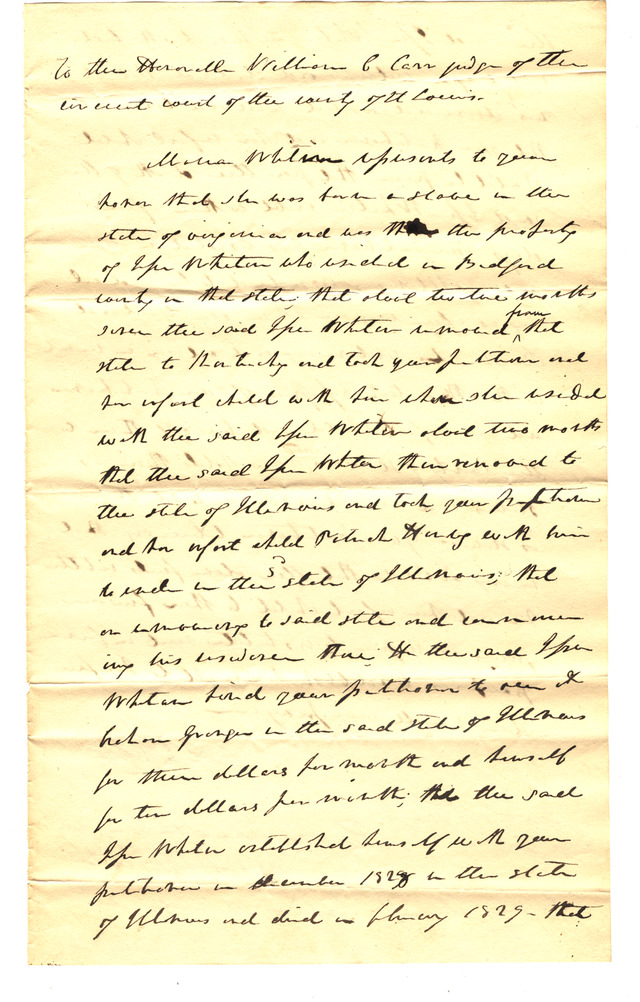 To the Honorable William C Carr judge of the
circuit court of the county of St Louis.
Maria Whiten represents to your
honor that she was born a slave in the
state of virginia and was the property
of Whiten who resided in Bedford
county in that state, that about twelve months
since the said Whiten removed from that
state to Kentucky and took your petitioner and
her infant child with him where she resided
with the said Whiten about two months
that the said Whiten then removed to
the state of Illinois and took your petitioner
and her infant child Patrick Henry with him
to reside in the state of Illinois; that
on removing to said state and commenc
ing his residence there, the said
Whiten hired your petitioner to one
in the said state of Illinois
for three dollars per month and himself
for ten dollars per month; the said
Whiten established himself with your
petitioner in december 1828 in the state
of Illinois and died in february 1829 - that